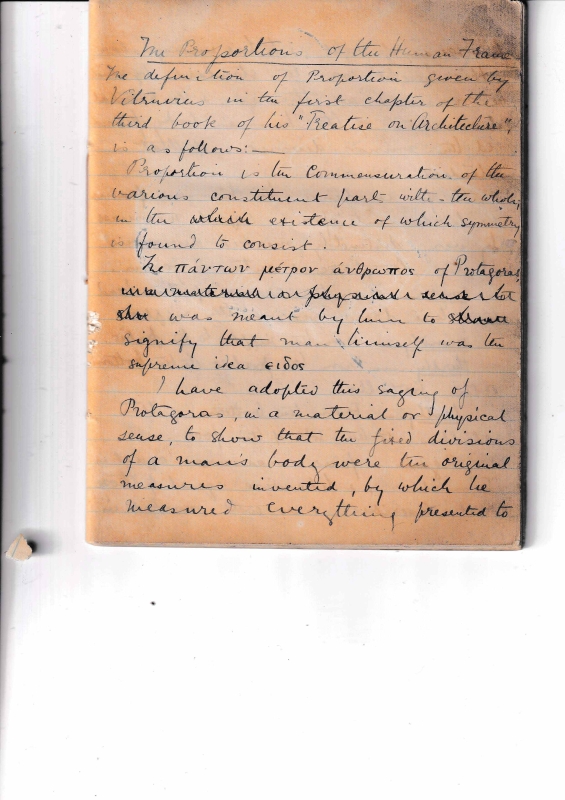 The Proportions of the Human Frame
The definition of Proportion given by
Vitruvius in the first chapter of the
third book of his "Treatise on Architecture",
is as follows:—
Proportion is the Commensuration of the
various constituent parts with the whole,
in the which existence of which symmetry
is found to consist.
The πάντων μέτρον άνθρωπος of Protagoras,
in a material or physical sense
was meant by him to show
signify that man himself was the
supreme idea ειδος
I have adopted this saying of
Protagoras, in a material or physical
sense, to show that the fixed divisions
of a man's body were the original
measures invented, by which he
measured everything presented to